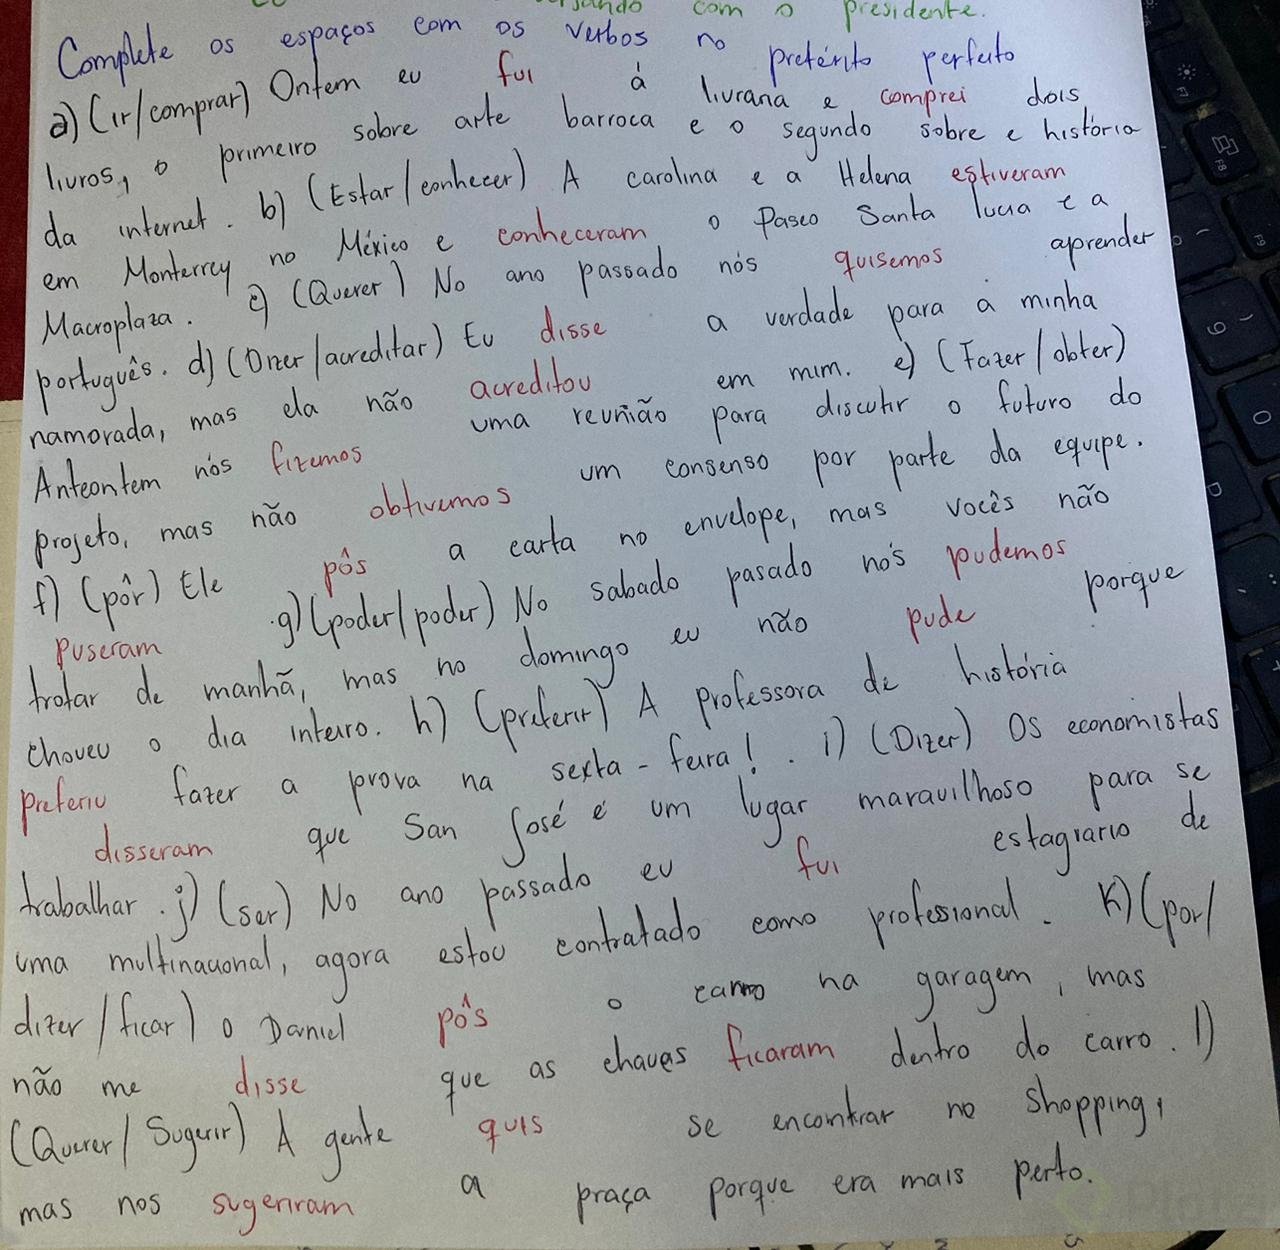 com o presidente.
Complete os espaços com os verbos no pretérito perfeito
a) (ir/comprar) Ontem eu fui à livraria e comprei dois
livros, o primeiro sobre arte barroca e o segundo sobre e história
da internet. b) (Estar/conhecer) A carolina e a Helena estiveram
em Monterrey no México e conheceram o Paseo Santa lucia e a
Macroplaza. c) (Querer) No ano passado nós quisemos aprender
português. d) (Dizer/acreditar) Eu disse a verdade para a minha
namorada, mas ela não acreditou em mim. e) (Fazer/obter)
Anteontem nós fizemos uma reunião para discutir o futuro do
projeto, mas não obtivemos um consenso por parte da equipe.
f) (pôr) Ele pôs a carta no envelope, mas vocês não
puseram .g) (poder/poder) No sabado pasado nós pudemos
trotar de manhã, mas no domingo eu não pude porque
choveu o dia inteiro. h) (preferir) A professora de história
preferiu fazer a prova na sexta-feira!. i) (Dizer) Os economistas
disseram que San José é um lugar maravilhoso para se
trabalhar. j) (ser) No ano passado eu fui estagiario de
uma multinacional, agora estou contratado como professional. K) (por/
dizer/ficar) o Daniel pôs o carro na garagem, mas
não me disse que as chaves ficaram dentro do carro. l)
(Querer/Sugerir) A gente quis se encontrar no shopping,
mas nos sugeriram a praça porque era mais perto.